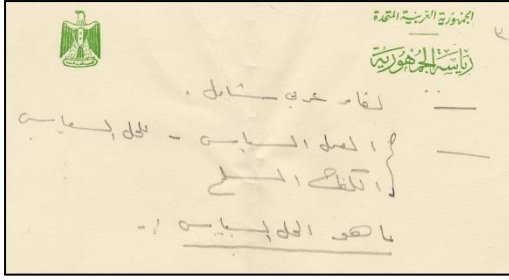 الجمهورية العربية المتحدة
رياسة الجمهورية
٣
لقاء عربى شامل .
العمل السياسى - للحل السياسى
الكفاح المسلح
ما هو الحل السياسى !-